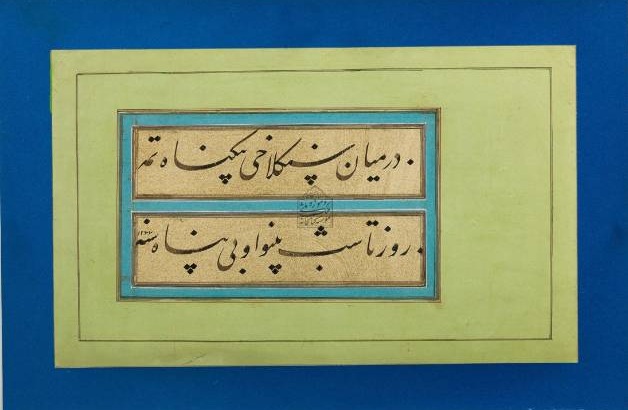 درمیان سنگلاخی بیگناه
روز تا شب بینوا و بی پناه سنه